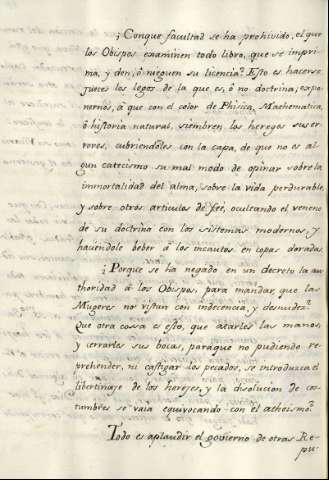 ¿Conque facultad se ha prohivido, el que
los Obispos examinen todo libro, que se impri-
ma, y den, ò nieguen su licencia? Esto es hacerse
jueces los legos de la que es, ò no doctrina; expo-
nernos, à que con el color de Phisica, Mathematica,
ò historia natural, siembren los hereges sus er-
rores, cubriendolos con la capa, de que no es al-
gun catecismo su mal modo de opinar sobre la
immortalidad del alma, sobre la vida perdurable,
y sobre otros articulos de feé, ocultando el veneno
de su doctrina con los sistemas modernos, y
haciendole beber à los incautos en copas doradas.
¿Porque se ha negado en un decreto la au-
thoridad à los Obispos para mandar, que las
Mugeres no vistan con indecencia, y desnudez?
Que otra cossa es esto, que atarles las manos,
y cerrarles sus bocas, paraque no pudiendo re-
prehender, ni castigar los pecados, se introduzca el
libertinaje de los herejes, y la disolucion de cos-
tumbres se vaia equivocando con el atheismo?
Todo es aplaudir el govierno de otras Re-
pu-